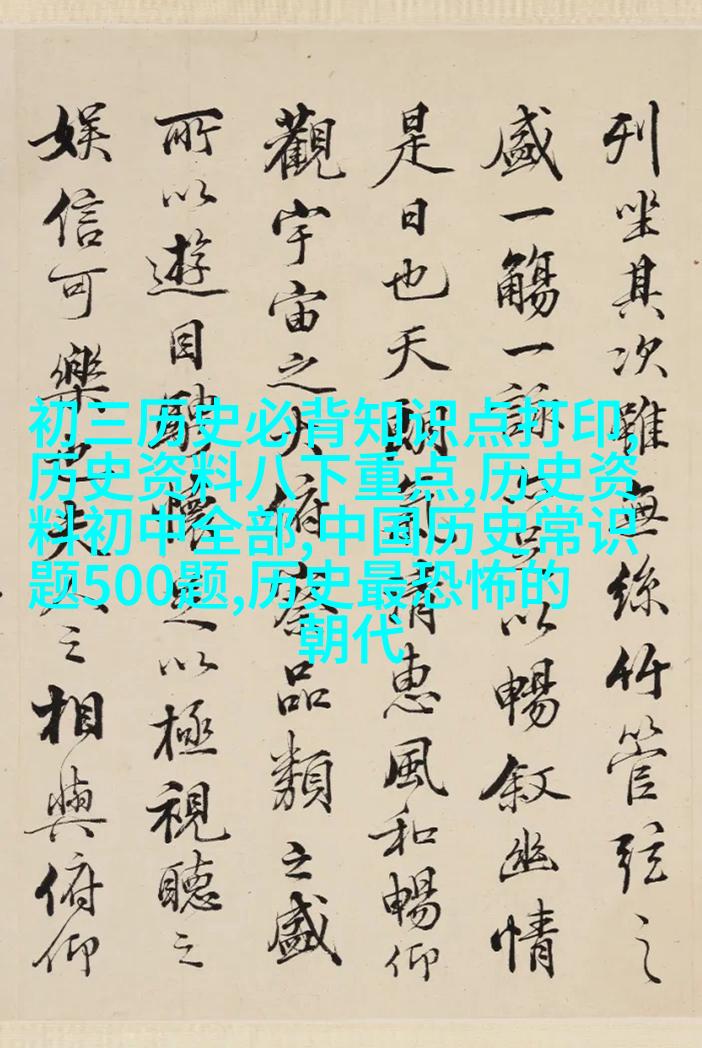 列坐其次雖無絲竹管弦之
盛一觴一詠亦足以暢敘幽情
是日也天朗氣清惠風和暢仰
觀宇宙之大俯察品類之盛
所以遊目騁懷足以極視聽之
娛信可樂也夫人之相與俯仰
初三历史必背知识点打印,
历史资料八下重点,历史资
料初中全部,中国历史常识
题500题,历史最恐怖的
朝代